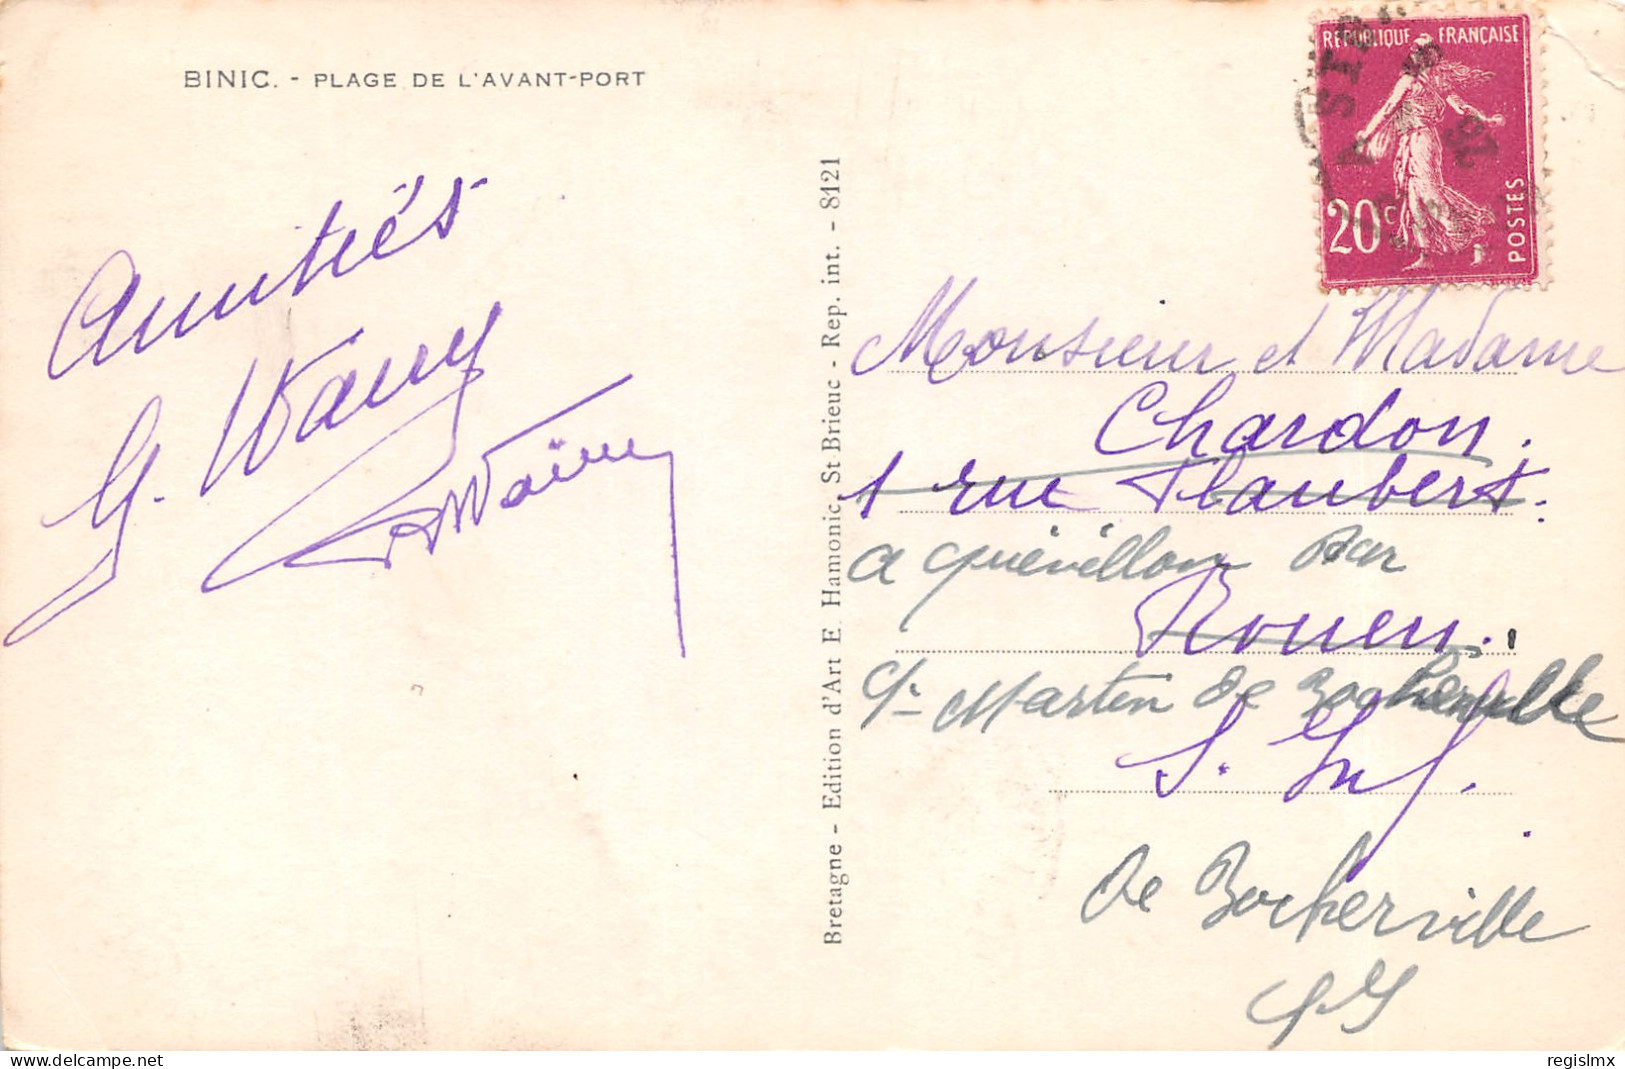 BINIC. - PLAGE DE L'AVANT-PORT
Amitiés
G. Wauy
Bretagne - Edition d'Art E. Hamonic, St Brieuc - Rep. int. - 8121
RÉPUBLIQUE FRANÇAISE
20c
POSTES
Monsieur et Madame
Chardon.
1 rue Flaubert.
a quévillon par
Rouen.
St Martin de Bocherville
S. Inf.
de Bocherville
S I
delcampe.net
regislmx